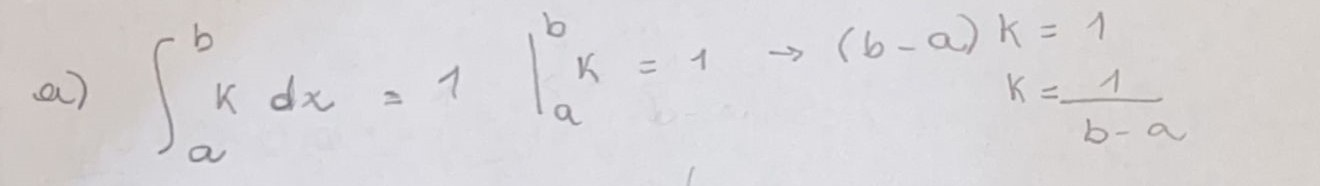 a) ∫_a^b K dx = 1 |_a^b K = 1 → (b-a) K = 1
K = 1/(b-a)